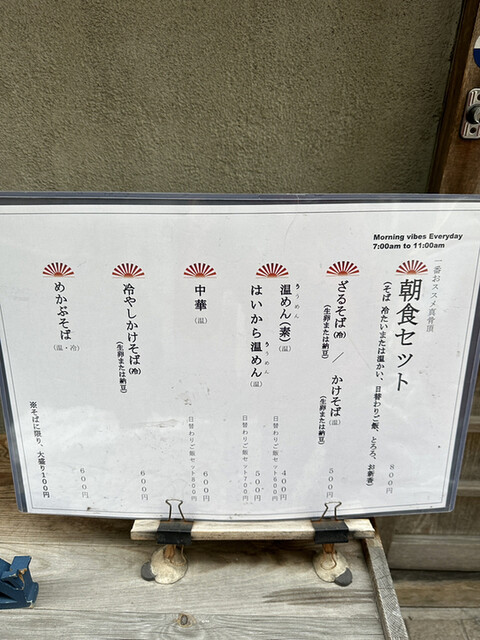 Morning vibes Everyday
7:00am to 11:00am
一番おススメ真骨頂
朝食セット
(そば 冷たいまたは温かい、日替わりご飯、とろろ、お新香)
800円
ざるそば(冷) / かけそば(温)
(生卵または納豆) (生卵または納豆)
500円
温めん(素)(温)
うーめん
400円
日替わりご飯セット600円
はいから温めん(温)
うーめん
500円
日替わりご飯セット700円
中華(温)
600円
日替わりご飯セット800円
冷やしかけそば(冷)
(生卵または納豆)
600円
めかぶそば(温・冷)
600円
※そばに限り、大盛り100円